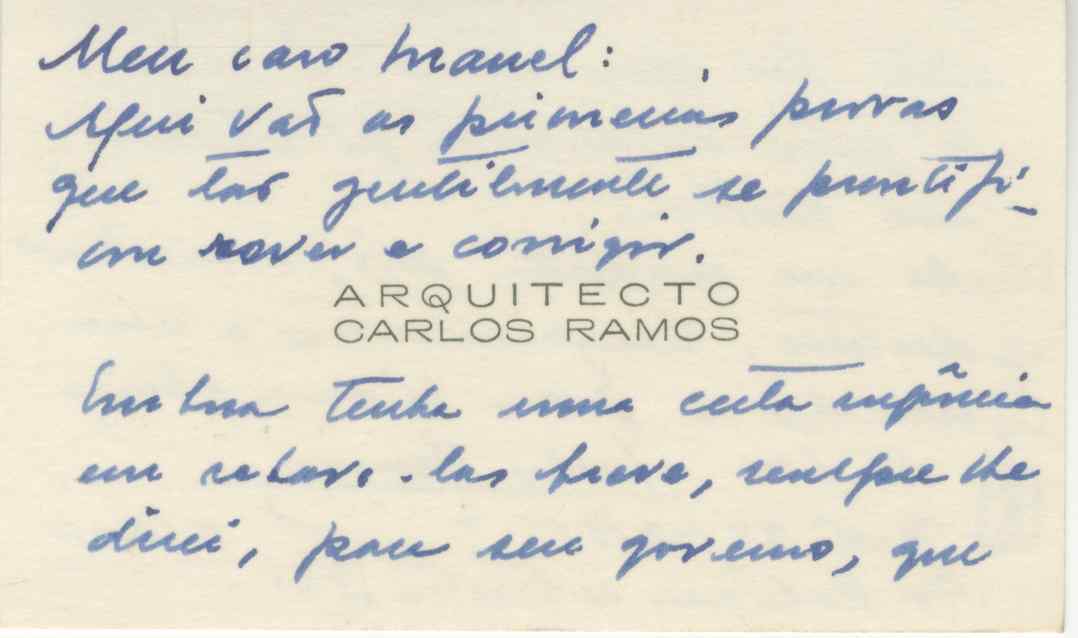 Meu caro Manel:
Aqui vão as primeiras provas
que tão gentilmente se prontifi-
cou rever e corrigir.
ARQUITECTO
CARLOS RAMOS
Embora tenha uma certa urgência
em reteve-las breve, sempre lhe
direi, para seu governo, que